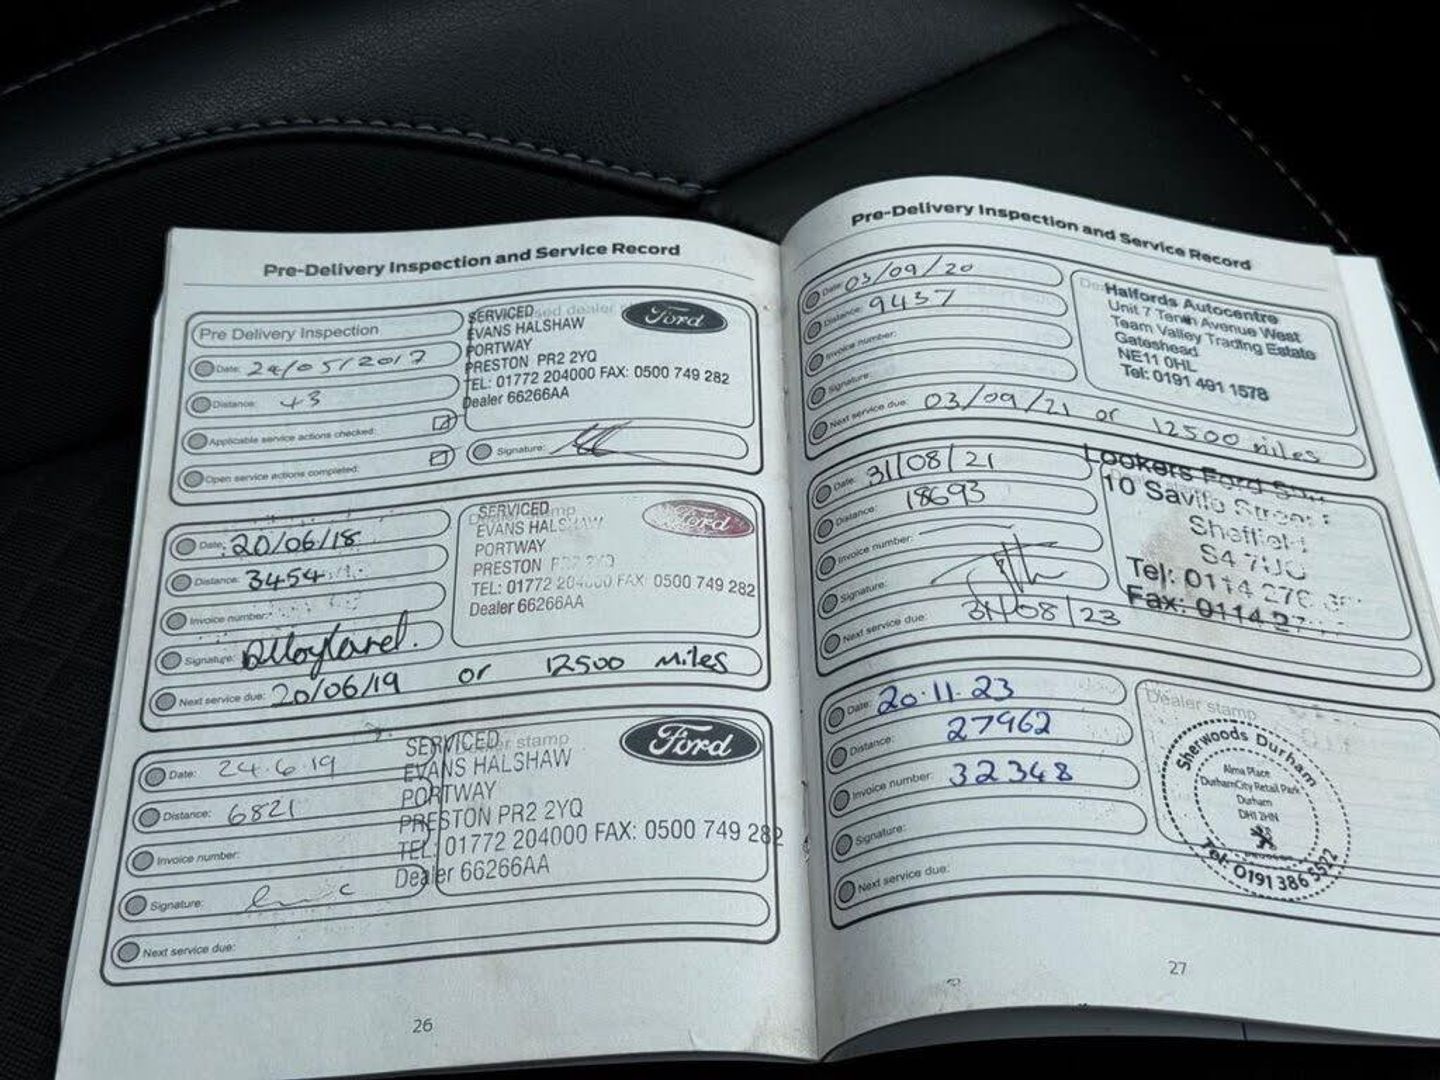 Pre-Delivery Inspection and Service Record
Pre Delivery Inspection
Date: 24/05/2017
Distance: 43
Applicable service actions checked:
Open service actions completed:
SERVICED
EVANS HALSHAW
PORTWAY
PRESTON PR2 2YQ
TEL: 01772 204000 FAX: 0500 749 282
Dealer 66266AA
Ford
Signature:
Date: 20/06/18
Distance: 3454
Invoice number:
Signature:
Next service due: 20/06/19 or 12500 Miles
SERVICED
EVANS HALSHAW
PORTWAY
PRESTON
TEL: 01772 204000 FAX: 0500 749 282
Dealer 66266AA
Ford
Date: 24.6.19
Distance: 6821
Invoice number:
Signature:
Next service due:
SERVICED
EVANS HALSHAW
PORTWAY
PRESTON PR2 2YQ
TEL: 01772 204000 FAX: 0500 749 282
Dealer 66266AA
Ford
26
Pre-Delivery Inspection and Service Record
Date: 03/09/20
Distance: 9437
Invoice number:
Signature:
Next service due: 03/09/21 or 12500 miles
Halfords Autocentre
Unit 7 Tenth Avenue West
Team Valley Trading Estate
Gateshead
NE11 0HL
Tel: 0191 491 1578
Date: 31/08/21
Distance: 18693
Invoice number:
Signature:
Next service due: 31/08/23
Lookers Ford
10 Savile Street
Sheffield
S4 7UG
Tel: 0114 276
Fax: 0114
Date: 20.11.23
Distance: 27962
Invoice number: 32348
Signature:
Next service due:
Dealer stamp
Sherwoods Durham
Alma Place
Durham City Retail Park
Durham
DH1 2HN
Tel: 0191 386 5522
27